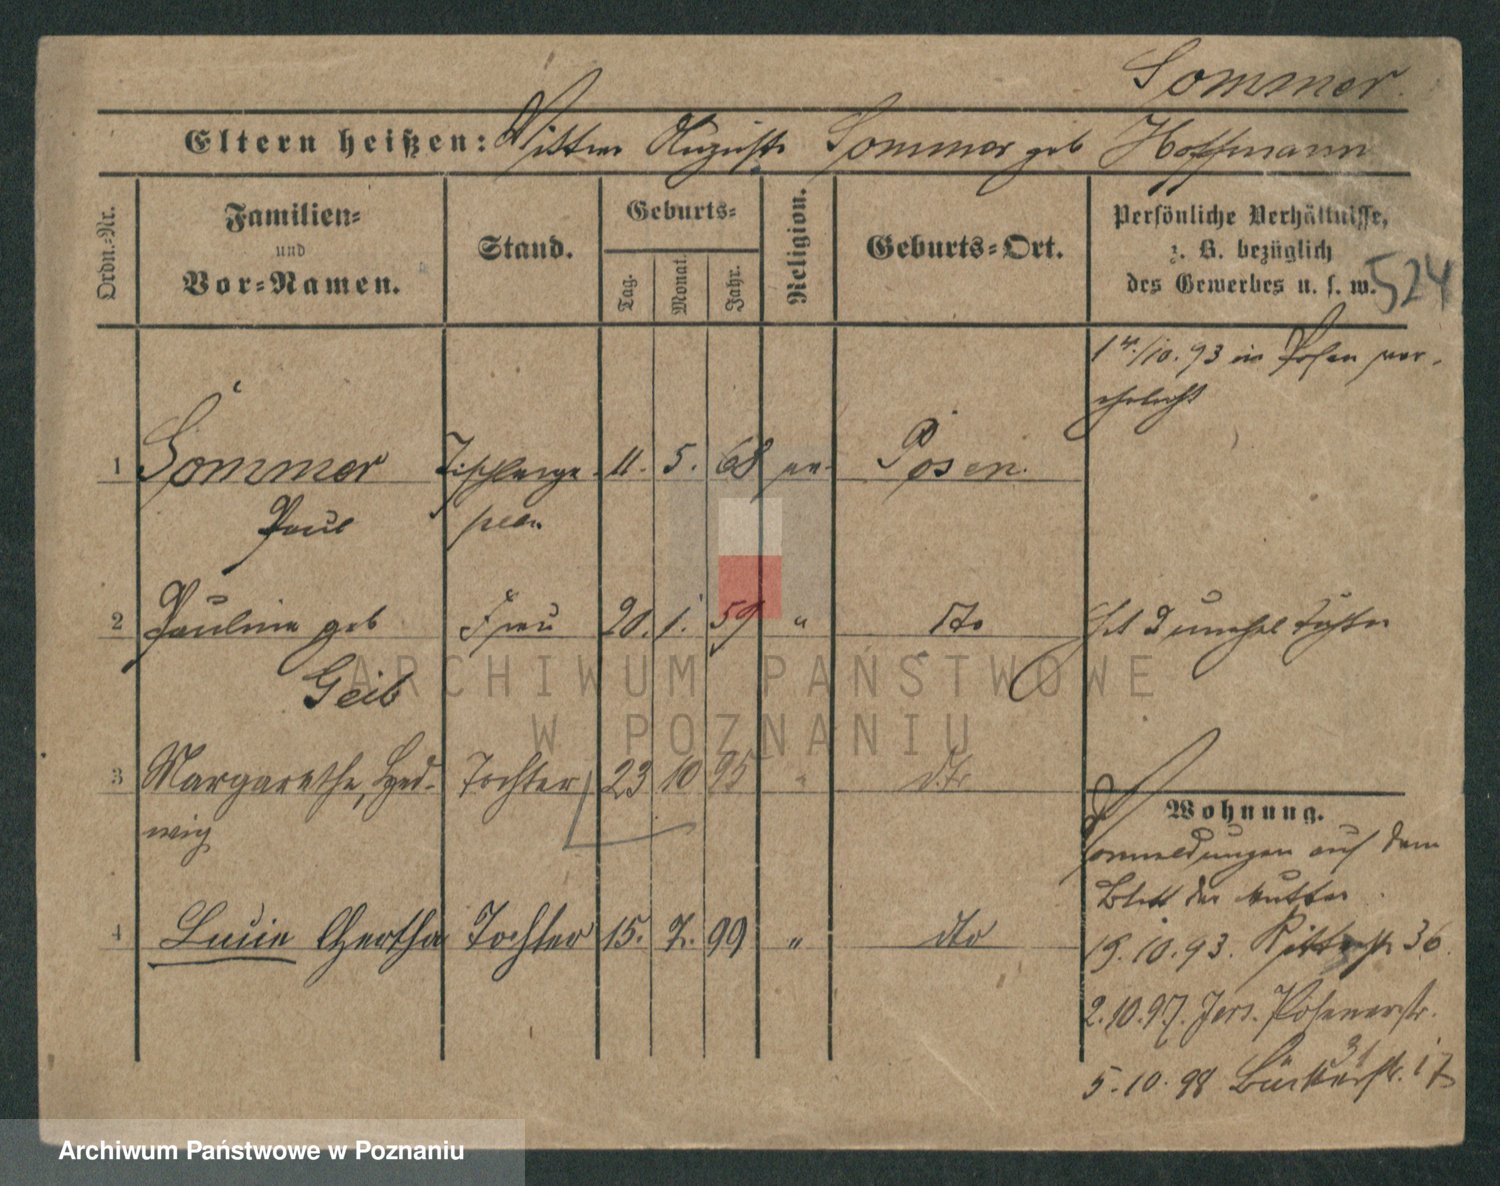 Sommer.
Eltern heißen: Wittwe Auguste Sommer geb Hoffmann
Ordn.-Nr.
Familien-
und
Vor-Namen.
Stand.
Geburts-
Tag.
Monat.
Jahr.
Religion.
Geburts-Ort.
Persönliche Verhältnisse,
z. B. bezüglich
des Gewerbes u. s. w.
524
10.93 in Posen ver-
ehelicht
1 Sommer Tischlerge- 11. 5. 68 ev. Posen.
Paul sellen
2 Pauline geb Frau 20. 1. 59 " dto
Geib
3 Margarethe, Hed- Tochter 23 10 95 " dto
wig
Wohnung.
auf dem
Blatt der Mutter
4 Lucie Gertha Tochter 15. 7. 99 " dto
15.10.93. Ritterstr 36.
2.10.97. Jers. Posenerstr.
31
5.10.98 Bäckerstr. 17
ARCHIWUM PAŃSTWOWE
W POZNANIU
Archiwum Państwowe w Poznaniu